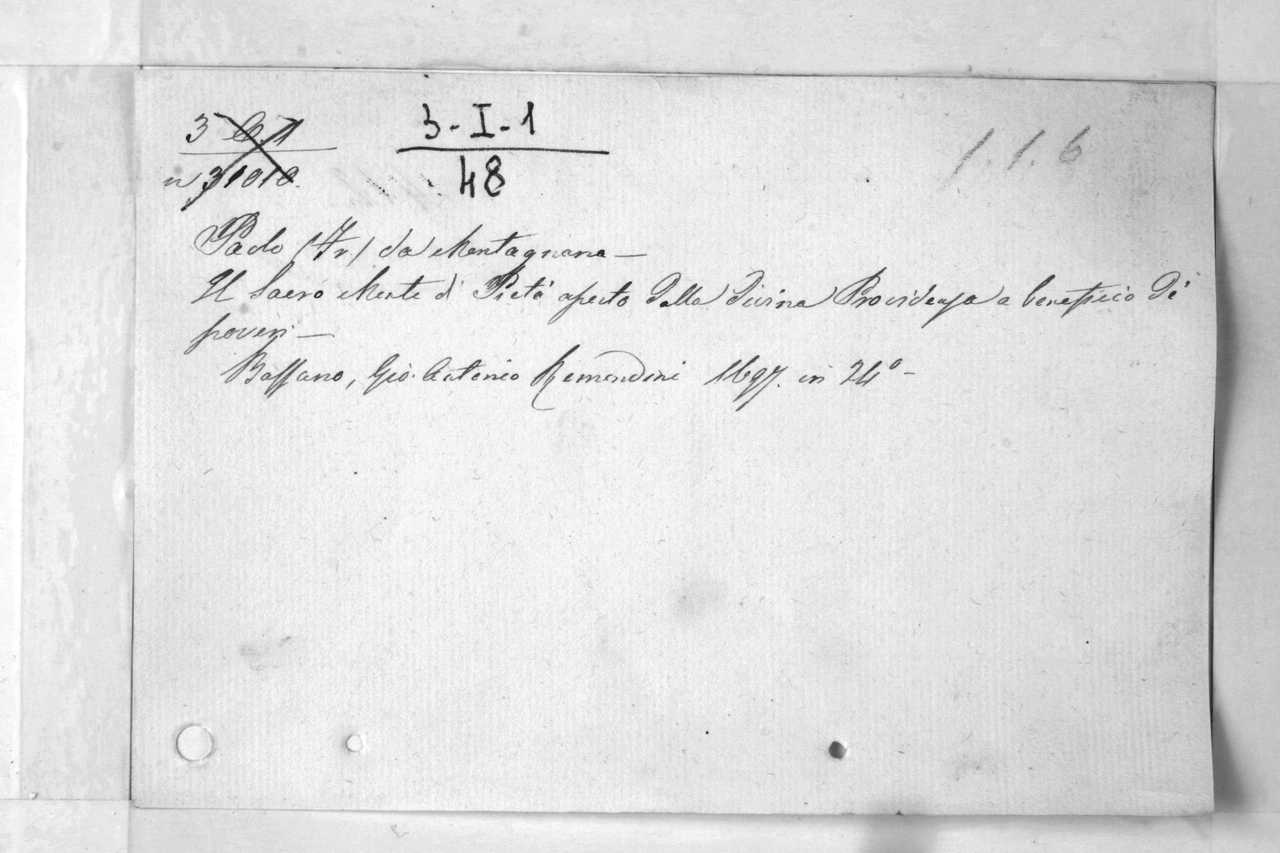 3 6.1
n 31010.
3-I-1
48
1.1.6
Paolo (Fr) da Montagnana —
Il Sacro Monte di Pietà aperto dalla Divina Providenza a beneficio de'
poveri —
Bassano, Gio. Antonio Remondini 1697. in 24° -